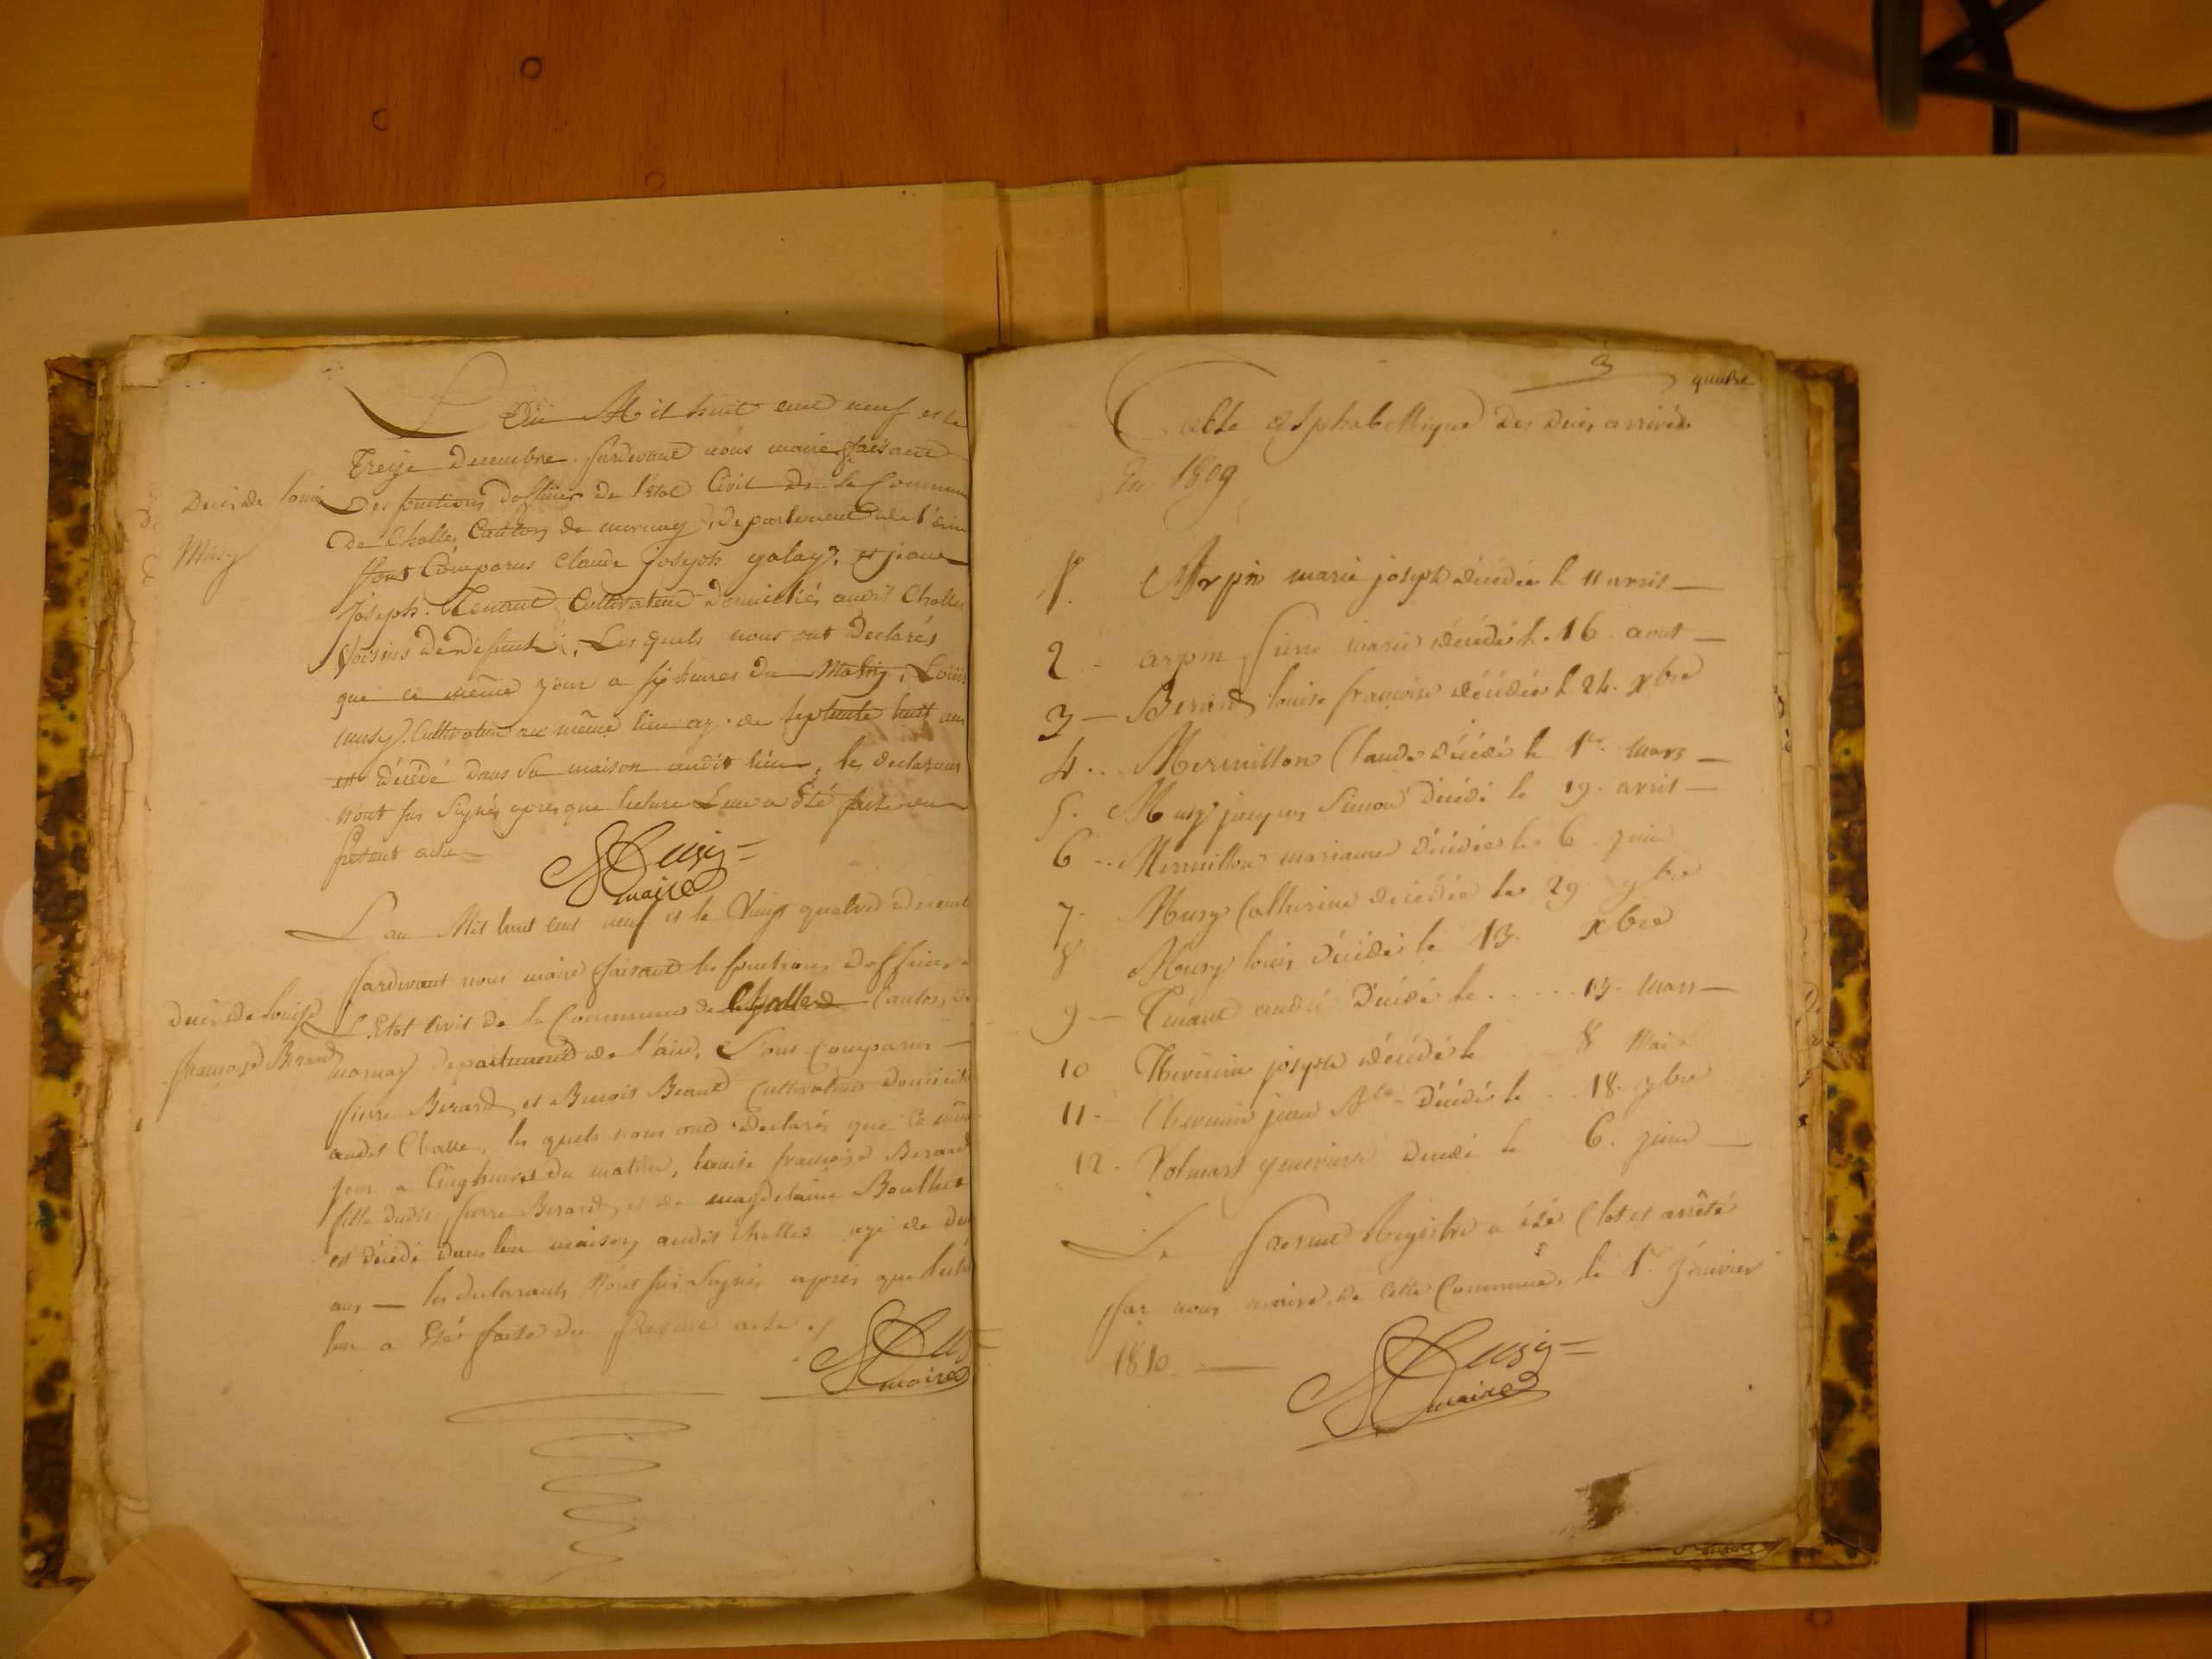 L'an Mil huit cent neuf et le
Treize Decembre pardevant nous maire faisant
Décès de Louis
Les fonctions d'officier de l'Etat Civil de la Commune
Musy
de Challes Canton de mornay, departement de l'ain
sont Comparus Claude joseph et
joseph Tenand Cultivateur domiciliés audit Challes
Voisins de défunt, Lesquels nous ont Declarés
que ce même jour a sept heures du Matin, Louis
musy Cultivateur au même lieu agé de septante huit ans
est décédé dans sa maison audit lieu, les declarans
n'ont pas Signés apres que lecture Leur a été faite du
présent acte
Musy
maire
L'an Mil huit cent neuf et le Vingt quatre decembre
pardevant nous maire faisant les fonctions d'officier de
décès de louise
L'Etat Civil de la Commune de Challes Canton de
françoise Berard
mornay departement de l'ain, Sont Comparus
pierre Berard et Benoit Beaud Cultivateur domiciliés
audit Challe, les quels nous ont declarés que ce même
jour a Cinq heures du matin, louise françoise Berard
fille dudit pierre Berard et de magdelaine
est décédé dans leur maison audit Challes agé de
ans — les declarants N'ont pas Signés après que lecture
leur a Etés faite du present acte
Musy
maire
3
quatre
Table alphabettique des décès arrivés
En 1809
1. Arpin marie joseph décédée le 11 avril —
2 - arpin pierre marie décédé le 16 aout —
3 — Berard louise françoise décédée le 24 xbre
4 .. Mermillon Claude décédé le 1er mars —
5. Musy jacques Simon décédé le 19 avril —
6 .. Mermillon marianne décédée le 6 juin
7. Musy Catherine décédée le 29 9bre
8 Musy louis décédé le 13 xbre
9 — Tenand andré décédé le ..... 13 mars —
10 Thevenin joseph décédé le 8 Mai
11 - Thevenin jean Bte décédé le 18 7bre
12 - Volmard genevieve décédé le 6 juin —
Le present Registre a été Clos et arrêté
par nous maire de Cette Commune, le 1er janvier
1810 —
Musy
maire